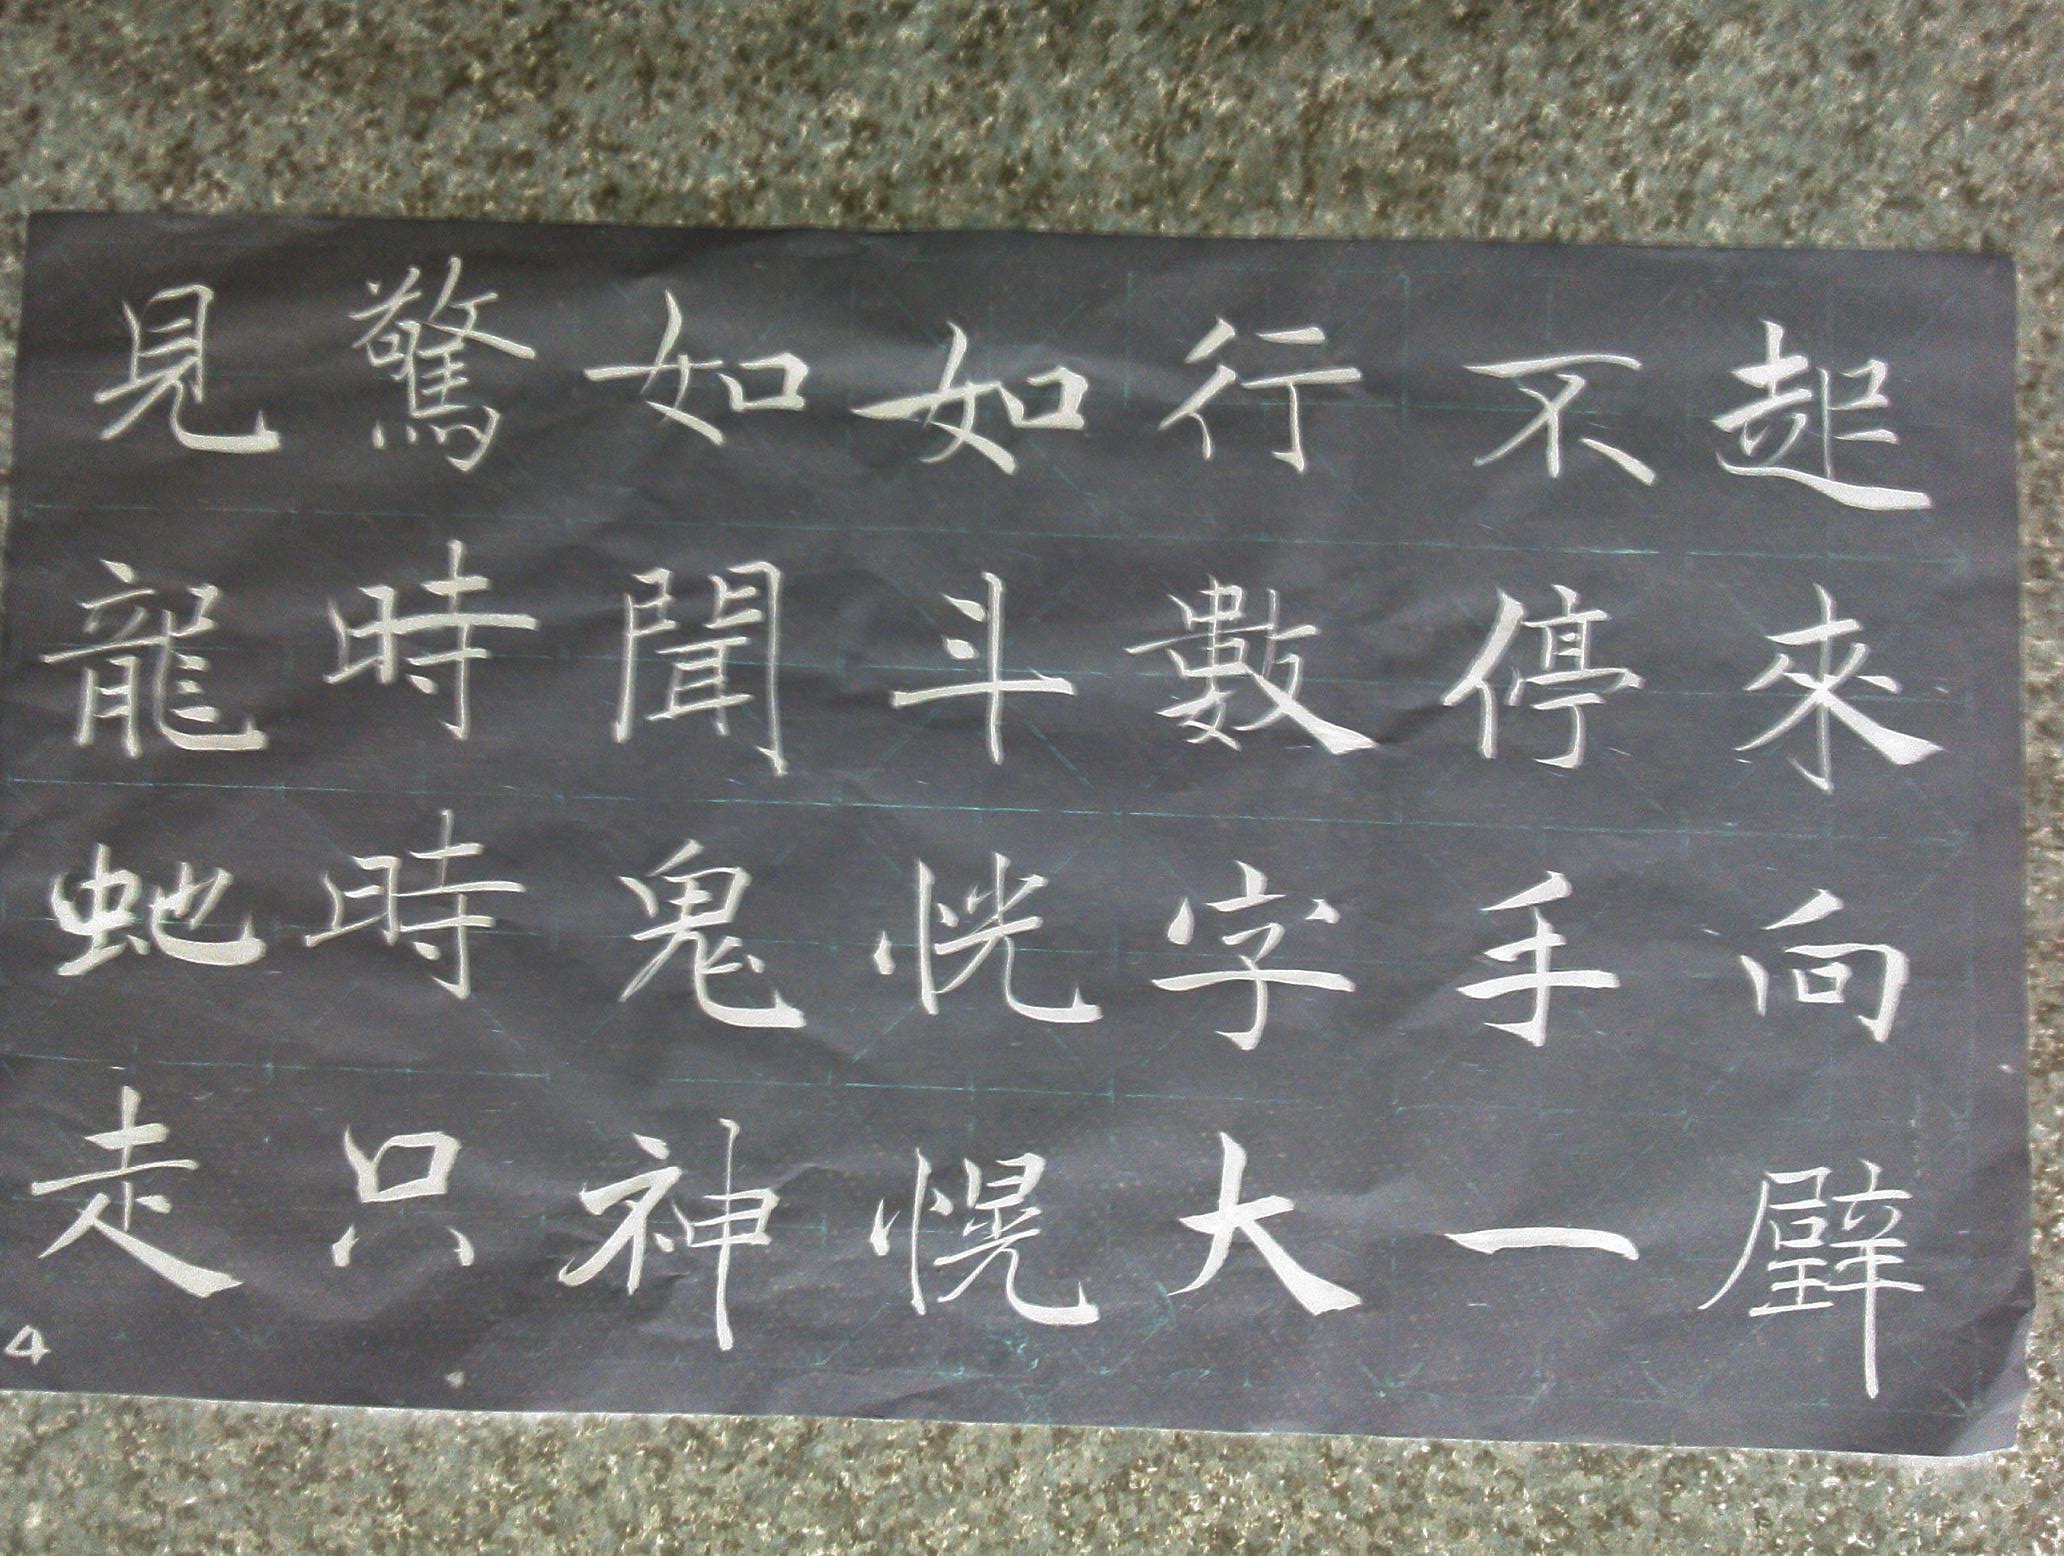 起來向壁
不停手一
行數字大
如斗恍愰
如聞鬼神
驚時時只
見龍虵走
4